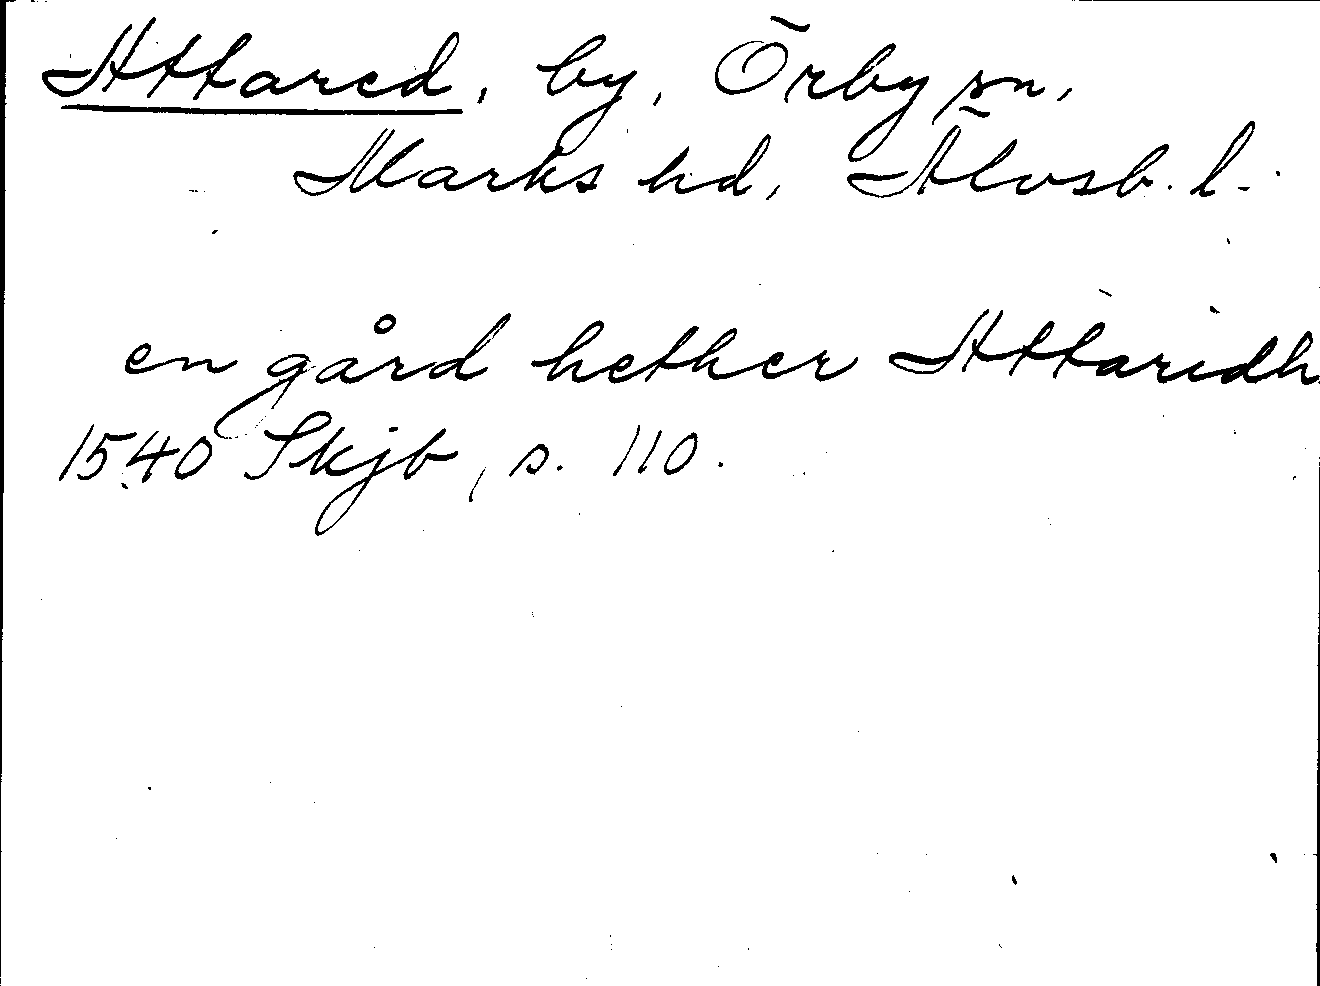 Attared, by, Örby sn,
Marks hd, Älvsb. l.
en gård hether Attaridh
1540 Skjb, s. 110.